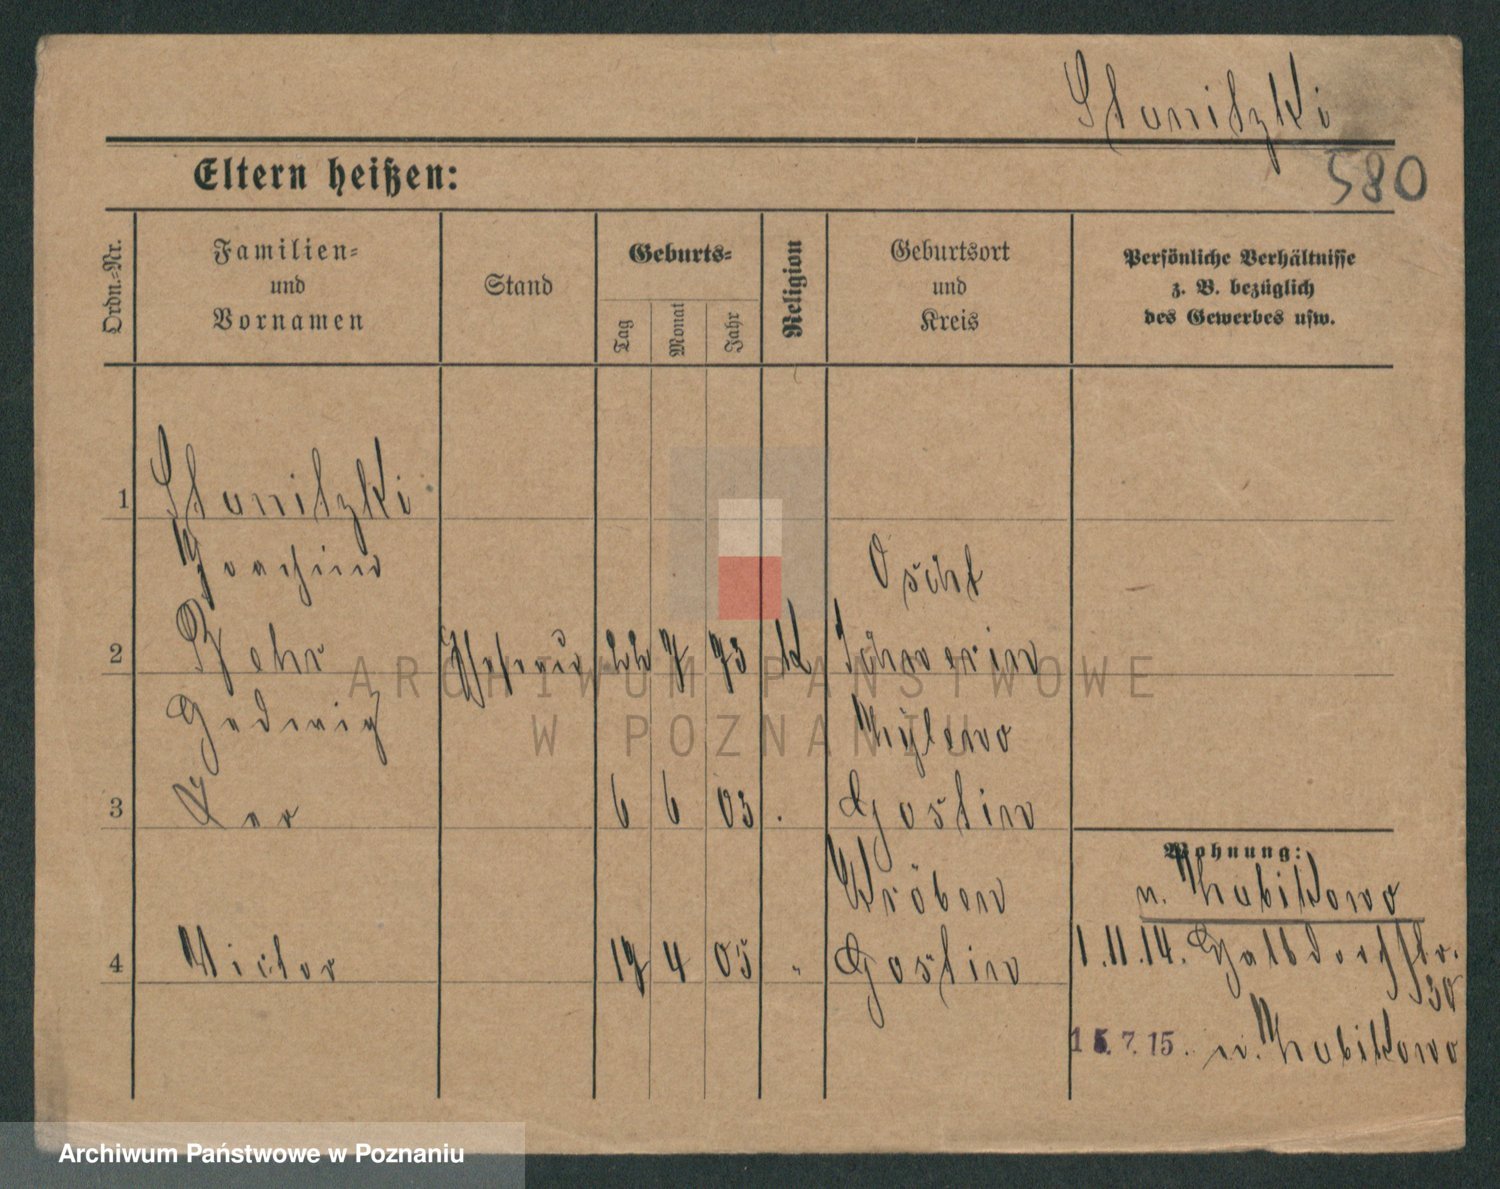 Stanitzki
580
Eltern heißen:
Ordn.-Nr.
Familien-
und
Vornamen
Stand
Geburts-
Tag
Monat
Jahr
Religion
Geburtsort
und
Kreis
Persönliche Verhältnisse
z. B. bezüglich
des Gewerbes usw.
1 Stanitzki
Joachim
2 Behr 22 7 73 K Schwerin
Hedwig
3 6 6 03 Gostin
Kröben
4 Victor 19 4 05 " Gostin
Wohnung:
n. Zabikowo
1.11.14. Halbdorfstr.
30
15.7.15. n. Zabikowo
ARCHIWUM PAŃSTWOWE
W POZNANIU
Archiwum Państwowe w Poznaniu